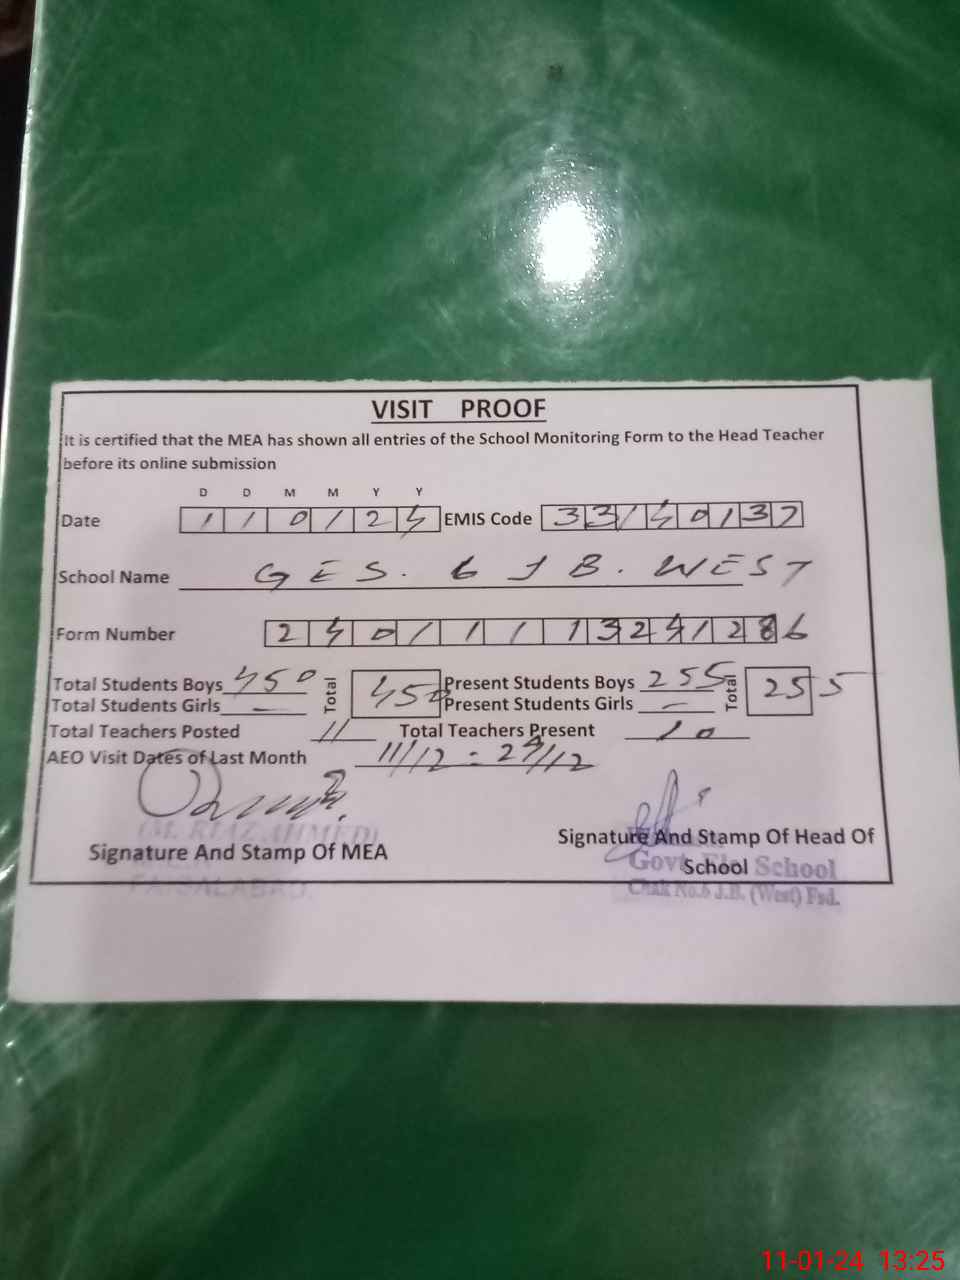 VISIT PROOF
It is certified that the MEA has shown all entries of the School Monitoring Form to the Head Teacher
before its online submission
D D M M Y Y
Date 110124 EMIS Code 33140137
School Name GES. 6 J B. WEST
Form Number
Total Students Boys 450 Total 450 Present Students Boys 255 Total 255
Total Students Girls — Present Students Girls —
Total Teachers Posted 11 Total Teachers Present 10
AEO Visit Dates of Last Month 11/12 = 29/12
(M. RIAZ AHMED)
Signature And Stamp Of MEA
FAISALABAD.
Signature And Stamp Of Head Of
School
Govt. Ele School
Chak No.6 J.B. (West) Fsd.
11-01-24 13:25